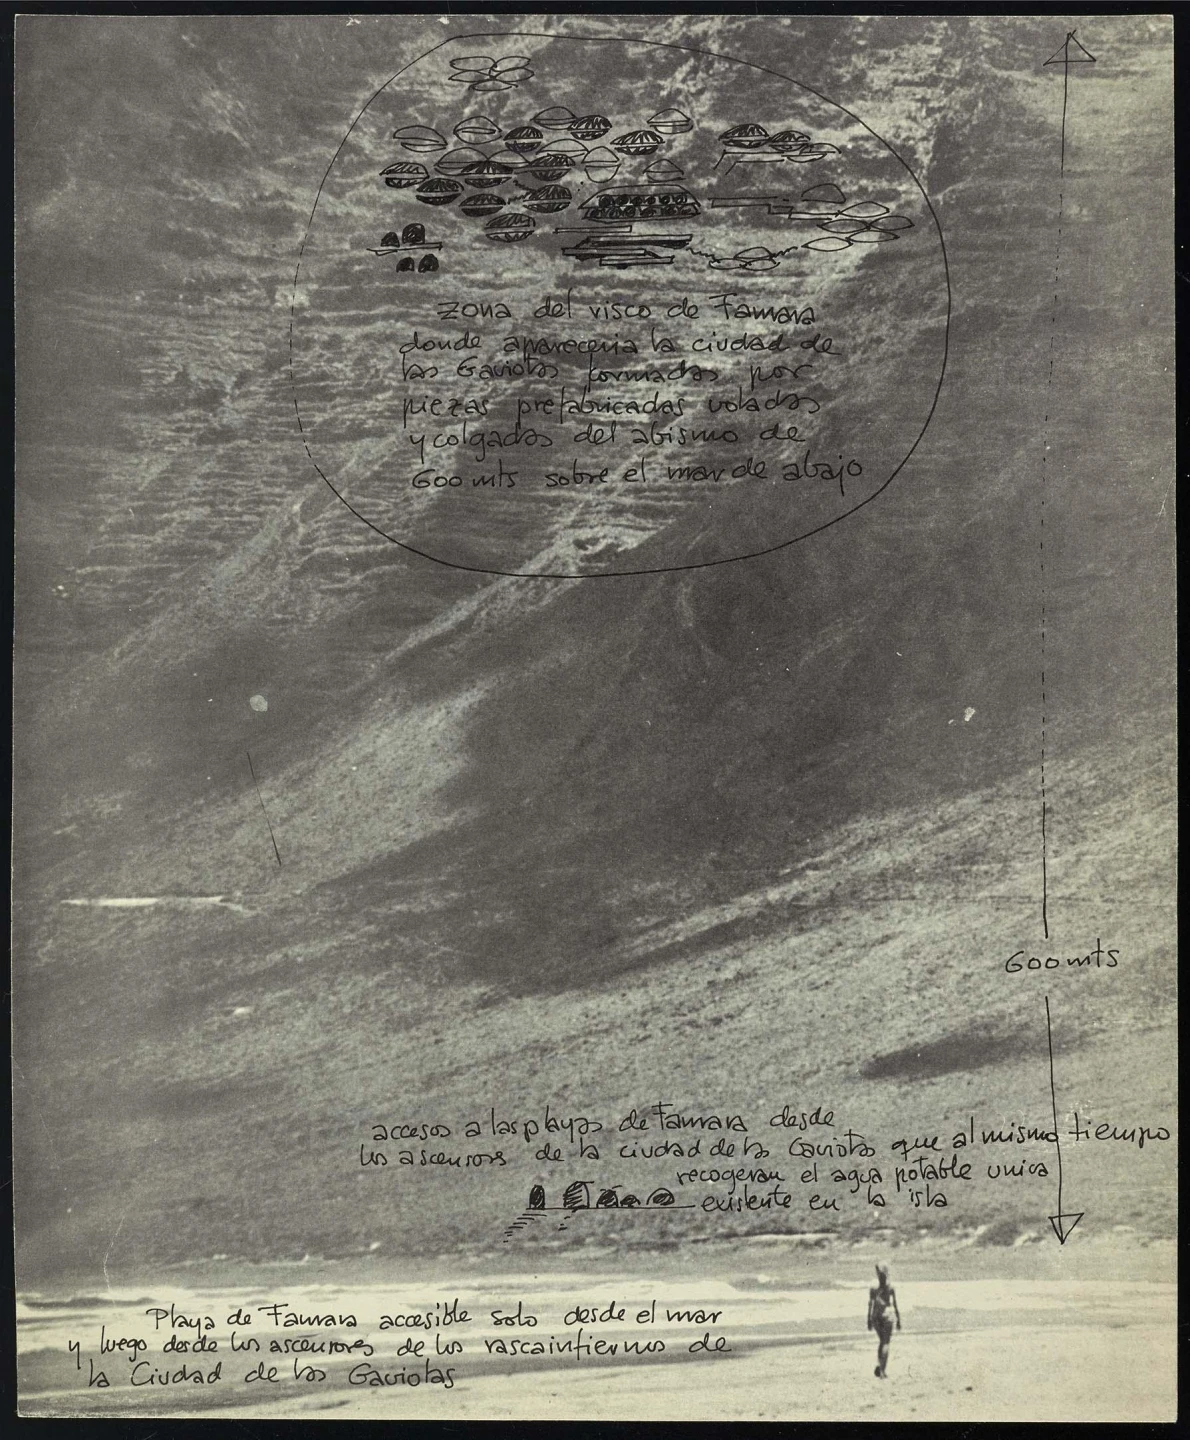 zona del risco de Famara
donde apareceria la ciudad de
las Gaviotas formadas por
piezas prefabricadas voladas
y colgadas del abismo de
600 mts sobre el mar de abajo
600 mts
accesos a las playas de Famara desde
los ascensores de la ciudad de las Gaviotas que al mismo tiempo
recogeran el agua potable unica
existente en la isla
Playa de Famara accesible solo desde el mar
y luego desde los ascensores de los rascainfiernos de
la Ciudad de las Gaviotas